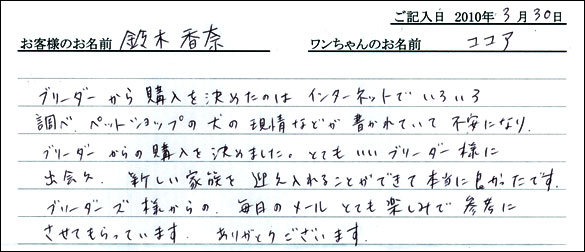 ご記入日 2010年 3月 30日
お客様のお名前 鈴木 香奈 ワンちゃんのお名前 ココア
ブリーダーから購入を決めたのは インターネットでいろいろ
調べ、ペットショップの犬の現情などが書かれていて不安になり、
ブリーダーからの購入を決めました。とてもいいブリーダー様に
出会え、新しい家族を迎え入れることができて本当に良かったです。
ブリーダーズ様からの、毎日のメールとても楽しみで参考に
させてもらっています。ありがとうございます。